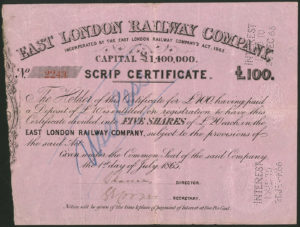 EAST LONDON RAILWAY COMPANY.
INCORPORATED BY THE EAST LONDON RAILWAY COMPANY'S ACT, 1865.
CAPITAL £1,400,000.
No 2243
SCRIP CERTIFICATE.
£100.
The Holder of this Certificate for £100, having paid
a Deposit of £10 is entitled on registration to have this
Certificate divided into FIVE SHARES of £20 each in the
EAST LONDON RAILWAY COMPANY, subject to the provisions of
the said Act.
Given under the Common Seal of the said Company
the 1st day of July 1865.
DIRECTOR.
SECRETARY.
Notice will be given of the time & place of payment of Interest at Five Per Cent.
INTEREST
INTEREST